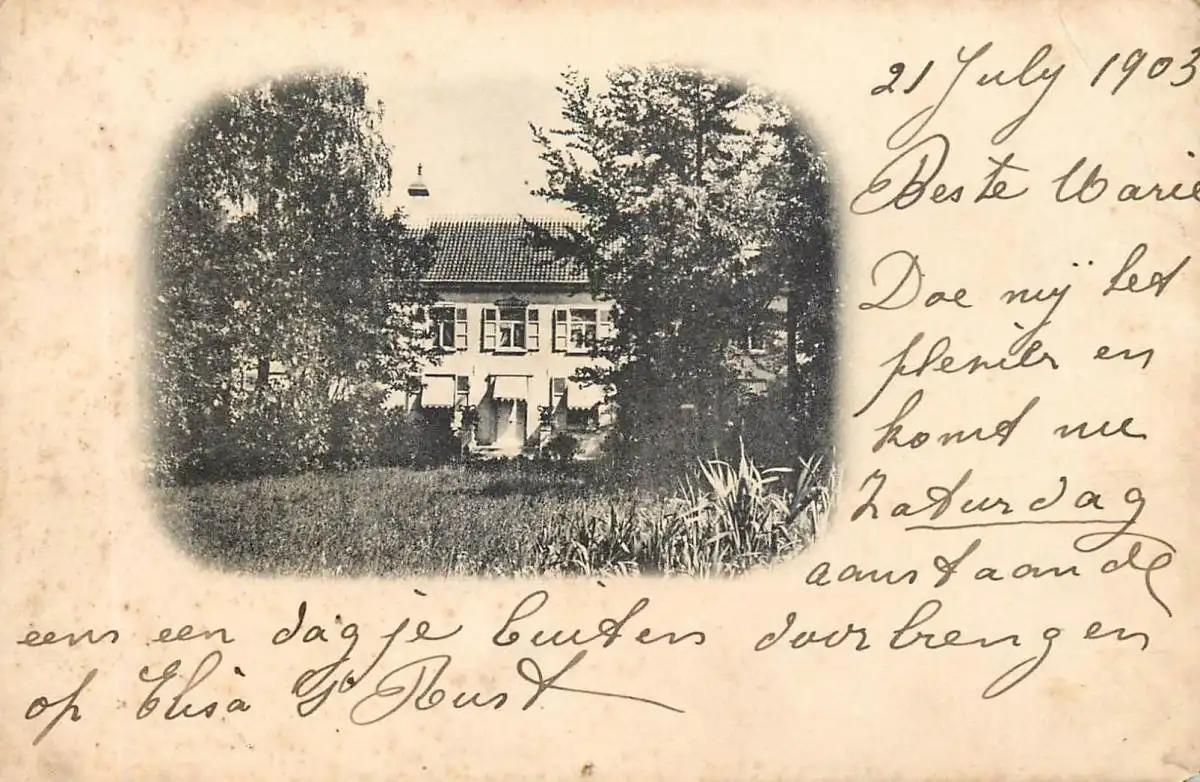 21 July 1903
Beste Marie
Doe mij het
plezier en
komt me
Zaturdag
aanstaande
eens een dagje buiten doorbrengen
op Elisa's Rust